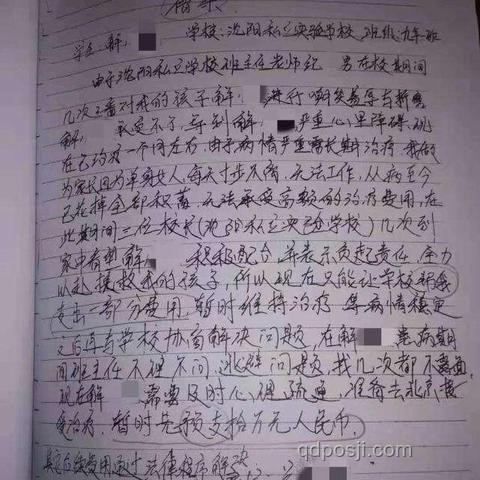 借条
学生:解 学校:沈阳私立实验学校 班级:九年 班
由于沈阳私立学校班主任老师纪 男在校期间
几次三番对我的孩子解: 进行
解: 承受不了,导到解: 严重心里障碍,现
在已约有一个月左右,由于病情严重需长期治疗,我做
为家长因为单身女人,每天寸步不离,无法工作,从病至今
已花掉全部积蓄,无法承受高额的治疗费用,在
此期间三位校长(沈阳私立实验学校)几次到
家中看望解 积极配合,并表示负起责任,全力
以赴,援救我的孩子,所以现在只能让学校
支出一部分费用,暂时维持治疗,等病情稳定
之后再与学校协商解决问题,在解 患病期
间班主任不理不问,逃避问题,找几次都不露面,
现在解 需要及时心理疏通,准备去北京接
受治疗,暂时先预支拾万元人民币,
其它后续费用通过法律程序解决
qdposji.com